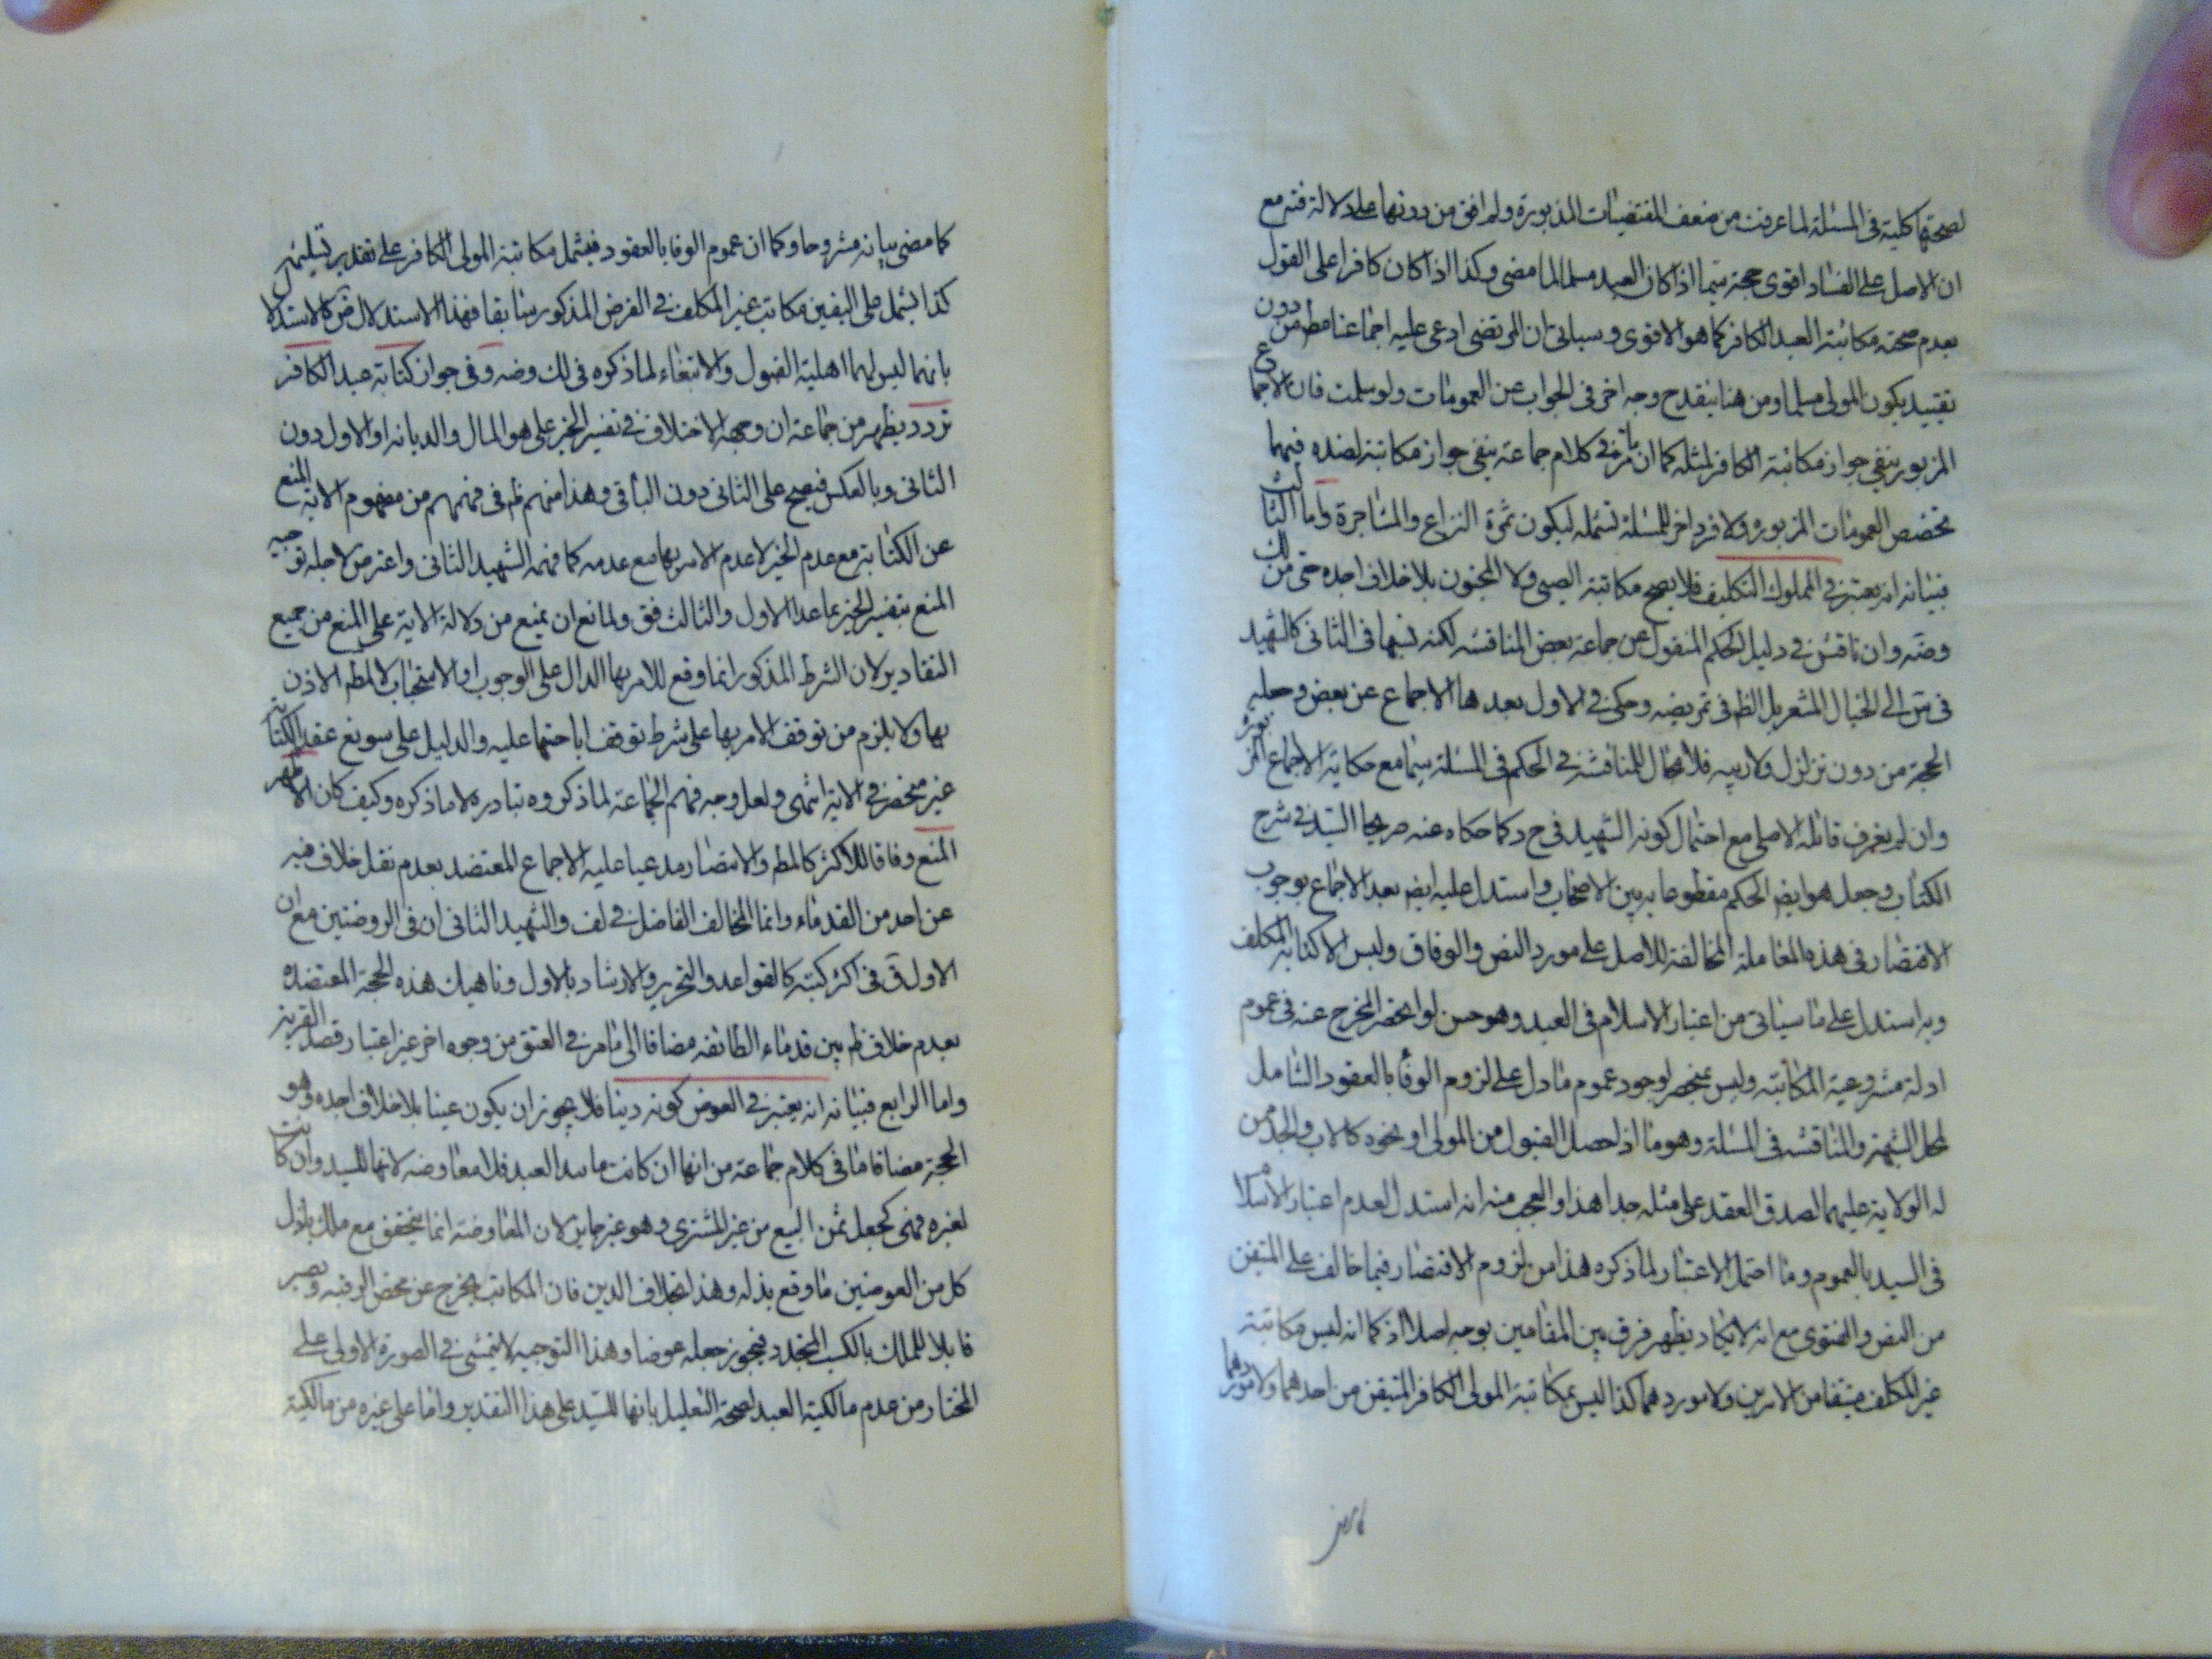 لصحتها كلية فى المسئلة لما عرفت من ضعف المقتضيات المذبورة ولم افق من دونها على دلالة فتم مع
ان الاصل على الفساد اقوى حجة سيما اذا كان العبد مسلما لما مضى وكذا اذا كان كافرا على القول
بعدم صحة مكاتبة العبد الكافر كما هو الاقوى وسياتى ان المرتضى ادعى عليه اجماعنا مط من دون
تقييد بكون المولى مسلما ومن هنا ينقدح وجه اخر فى الجواب عن العمومات ولو سلمت فان الاجماع
المزبور ينفى جواز مكاتبة الكافر لمثله كما ان مامر فى كلام جماعة ينفى جواز مكاتبته لضده فيهما
تخصص العمومات المزبوره ولا فرد اخر للمسئلة تشمله ليكون ثمرة النزاع والمشاجرة واما الثالث
فبيانه انه يعتبر فى المملوك التكليف فلا يصح مكاتبة الصبى ولا المجنون بلا خلاف اجده حتى من لك
وضه وان ناقش فى دليل الحكم المنقول عن جماعة بعض المناقشه لكنه نسبها فى الثانى كالشهيد
فى س الى الخيال المشعر بل الظ فى تمريضه وحكى فى الاول بعدها الاجماع عن بعض وجعله
الحجة من دون تزلزل ولا ريبه فلا مجال للمناقشة فى الحكم فى المسئلة سيما مع حكاية الاجماع
وان لم يعرف قائله الاصلى مع احتمال كونه الشهيد فى ح د كما حكاه عنه صريحا السيد فى شرح
الكتاب وجعل هو ايضم الحكم مقطوعا به بين الاصحاب واستدل عليه ايضم بعد الاجماع بوجوب
الاقتصار فى هذه المعاملة المخالفة للاصل على مورد النص والوفاق وليس الا كتابة المكلف
وبه استدل على ما سياتى من اعتبار الاسلام فى العبد وهو حسن لو انحصر المخرج عنه فى عموم
ادلة مشروعية المكاتبة وليس بمنحصر لوجود عموم ما دل على لزوم الوفا بالعقود الشامل
لمحل الشبهة والمناقشه فى المسئلة وهو ما اذا حصل القبول من المولى او نحوه كالاب والجد ممن
له الولاية عليهما لصدق العقد على مثله جدا هذا والعجب منه انه استدل لعدم اعتبار الاسلام
فى السيد بالعموم وما احتمل الاعتبار لما ذكره هذا من لزوم الاقتصار فيما خالف على المتيقن
من النص والفتوى مع انه لا يكاد يظهر فرق بين المقامين بوجه اصلا اذ كما انه ليس مكاتبة
غير المكلف متيقنا من الامرين ولا موردهما كذا ليس بمكاتبة المولى الكافر المتيقن من احدهما ولا موردهما
كما مر
كما مضى بيانه مشروحا وكما ان عموم الوفا بالعقود فيشمل مكاتبة المولى الكافر على تقدير تسليمه
كذا يشمل على اليقين مكاتب غير المكلف فى الفرض المذكور سابقا فهذا الاستدلال ض كالاستدلال
بانهما ليس لهما اهلية القبول والابتغاء لما ذكره فى لك وضه وفى جواز كتابة عبد الكافر
تردد يظهر من جماعة ان وجهه الاختلاف فى تفسير الخير على هو المال والديانه او الاول دون
الثانى وبالعكس فيصح على الثانى دون الباقى وهذا منهم ظ فى فهمهم من مفهوم الاية المنع
عن الكتابة مع عدم الخير لا عدم الامر بها مع عدمه كما فهمه الشهيد الثانى واعترض لاجله توجيه
المنع بتفسير الخير بما عدا الاول والثالث فق ولمانع ان يمنع من دلالة الاية على المنع من جميع
التقادير لان الشرط المذكور انما وقع للامر بها الدال على الوجوب او الاستحباب لا لمط الاذن
بها ولا يلزم من توقف الامر بها على شرط توقف اباحتها عليه والدليل على سويغ عقد الكتابة
غير منحصر فى الاية انتهى ولعل وجه فهم الجماعة لما ذكروه تبادره لا ما ذكره وكيف كان الاظهر
المنع وفاقا للاكثر كالمط والانتصار مدعيا عليه الاجماع المعتضد بعدم نقل خلاف فيه
عن احد من القدماء وانما المخالف الفاضل فى لف والشهيد الثانى ان فى الروضتين مع ان
الاول ق فى اكثر كتبه كالقواعد والتحرير والارشاد بالاول وناهيك هذه الحجة المعتضدة
بعدم خلاف ظ بين قدماء الطائفه مضافا الى مامر فى العتق من وجوه اخر غير اعتبار قصد القربة
واما الرابع فبيانه انه يعتبر فى العوض كونه دينا فلا يجوز ان يكون عينا بلا خلاف اجده وهو
الحجة مضافا ما فى كلام جماعة من انها ان كانت ما بيد العبد فلا معاوضه لانها للسيد وان كانت
لغيره فهى كجعل ثمن البيع من غير المشترى وهو غير جايز لان المعاوضة انما يتحقق مع ملك باذل
كل من العوضين ما وقع بذله وهذا بخلاف الدين فان المكاتب يخرج عن محض الرقيه ويصير
قابلا للملك بالكسب المتجدد فيجوز جعله عوضا وهذا التوجيه لا يتمشى فى الصورة الاولى على
المختار من عدم مالكية العبد لصحة التعليل بانها للسيد على هذا التقدير واما على غيره من مالكية